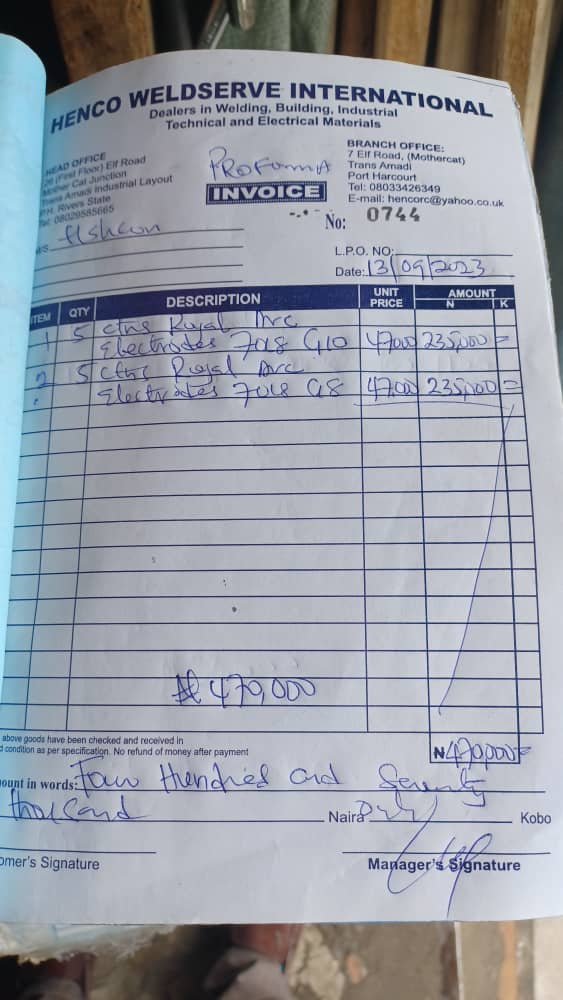 HENCO WELDSERVE INTERNATIONAL
Dealers in Welding, Building, Industrial
Technical and Electrical Materials
HEAD OFFICE
(First Floor) Elf Road
Mother Cat Junction
Trans Amadi Industrial Layout
P.H. Rivers State
Tel: 08029585665
PROFORMA
INVOICE
BRANCH OFFICE:
7 Elf Road, (Mothercat)
Trans Amadi
Port Harcourt
Tel: 08033426349
E-mail: hencorc@yahoo.co.uk
No: 0744
L.P.O. NO:
Date: 13/09/2023
ITEM QTY DESCRIPTION UNIT PRICE AMOUNT N K
1 5 ctns Royal Arc
Electrodes 7018 G10 47000 235,000 =
2 5 ctns Royal Arc
Electrodes 7018 G8 47,000 235,000 =
₦470,000
above goods have been checked and received in
condition as per specification. No refund of money after payment
₦470,000=
ount in words: Four Hundred and Seventy
thousand Naira Kobo
omer's Signature
Manager's Signature